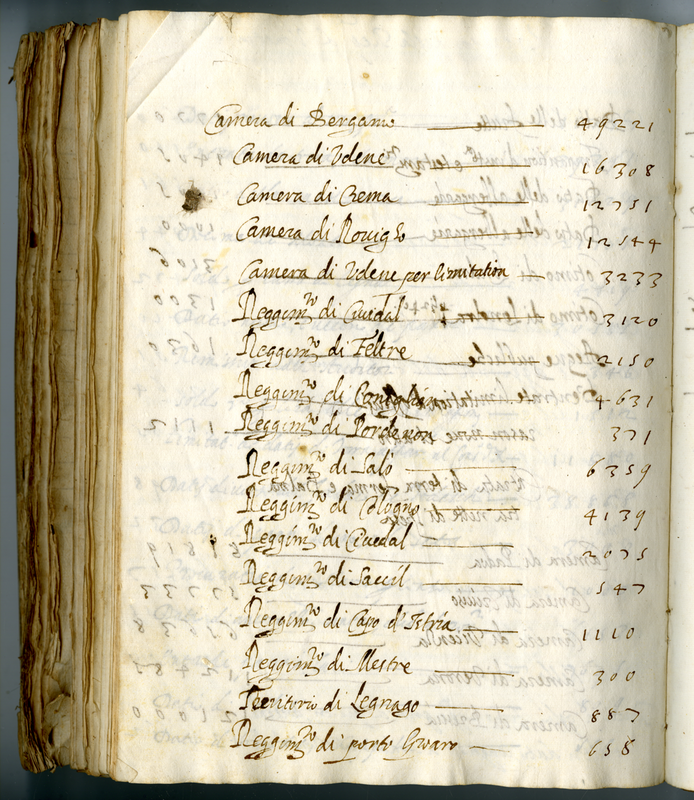 Camera di Bergamo 49221
Camera di Udene 16308
Camera di Crema 12751
Camera di Rouigo 12544
Camera di Udene per limitation 3233
Reggim.to di Ciuidal 3120
Reggim.to di Feltre 2150
Reggim.to di 4631
Reggim.to di Pordenon 371
Reggim.to di Salò 6359
Reggim.to di Cologna 4139
Reggim.to di Ciuidal 2075
Reggim.to di Saccil 547
Reggim.to di Capo d'Istria 1110
Reggim.to di Mestre 300
Territorio di Legnago 887
Reggim.to di porto Gruaro 658